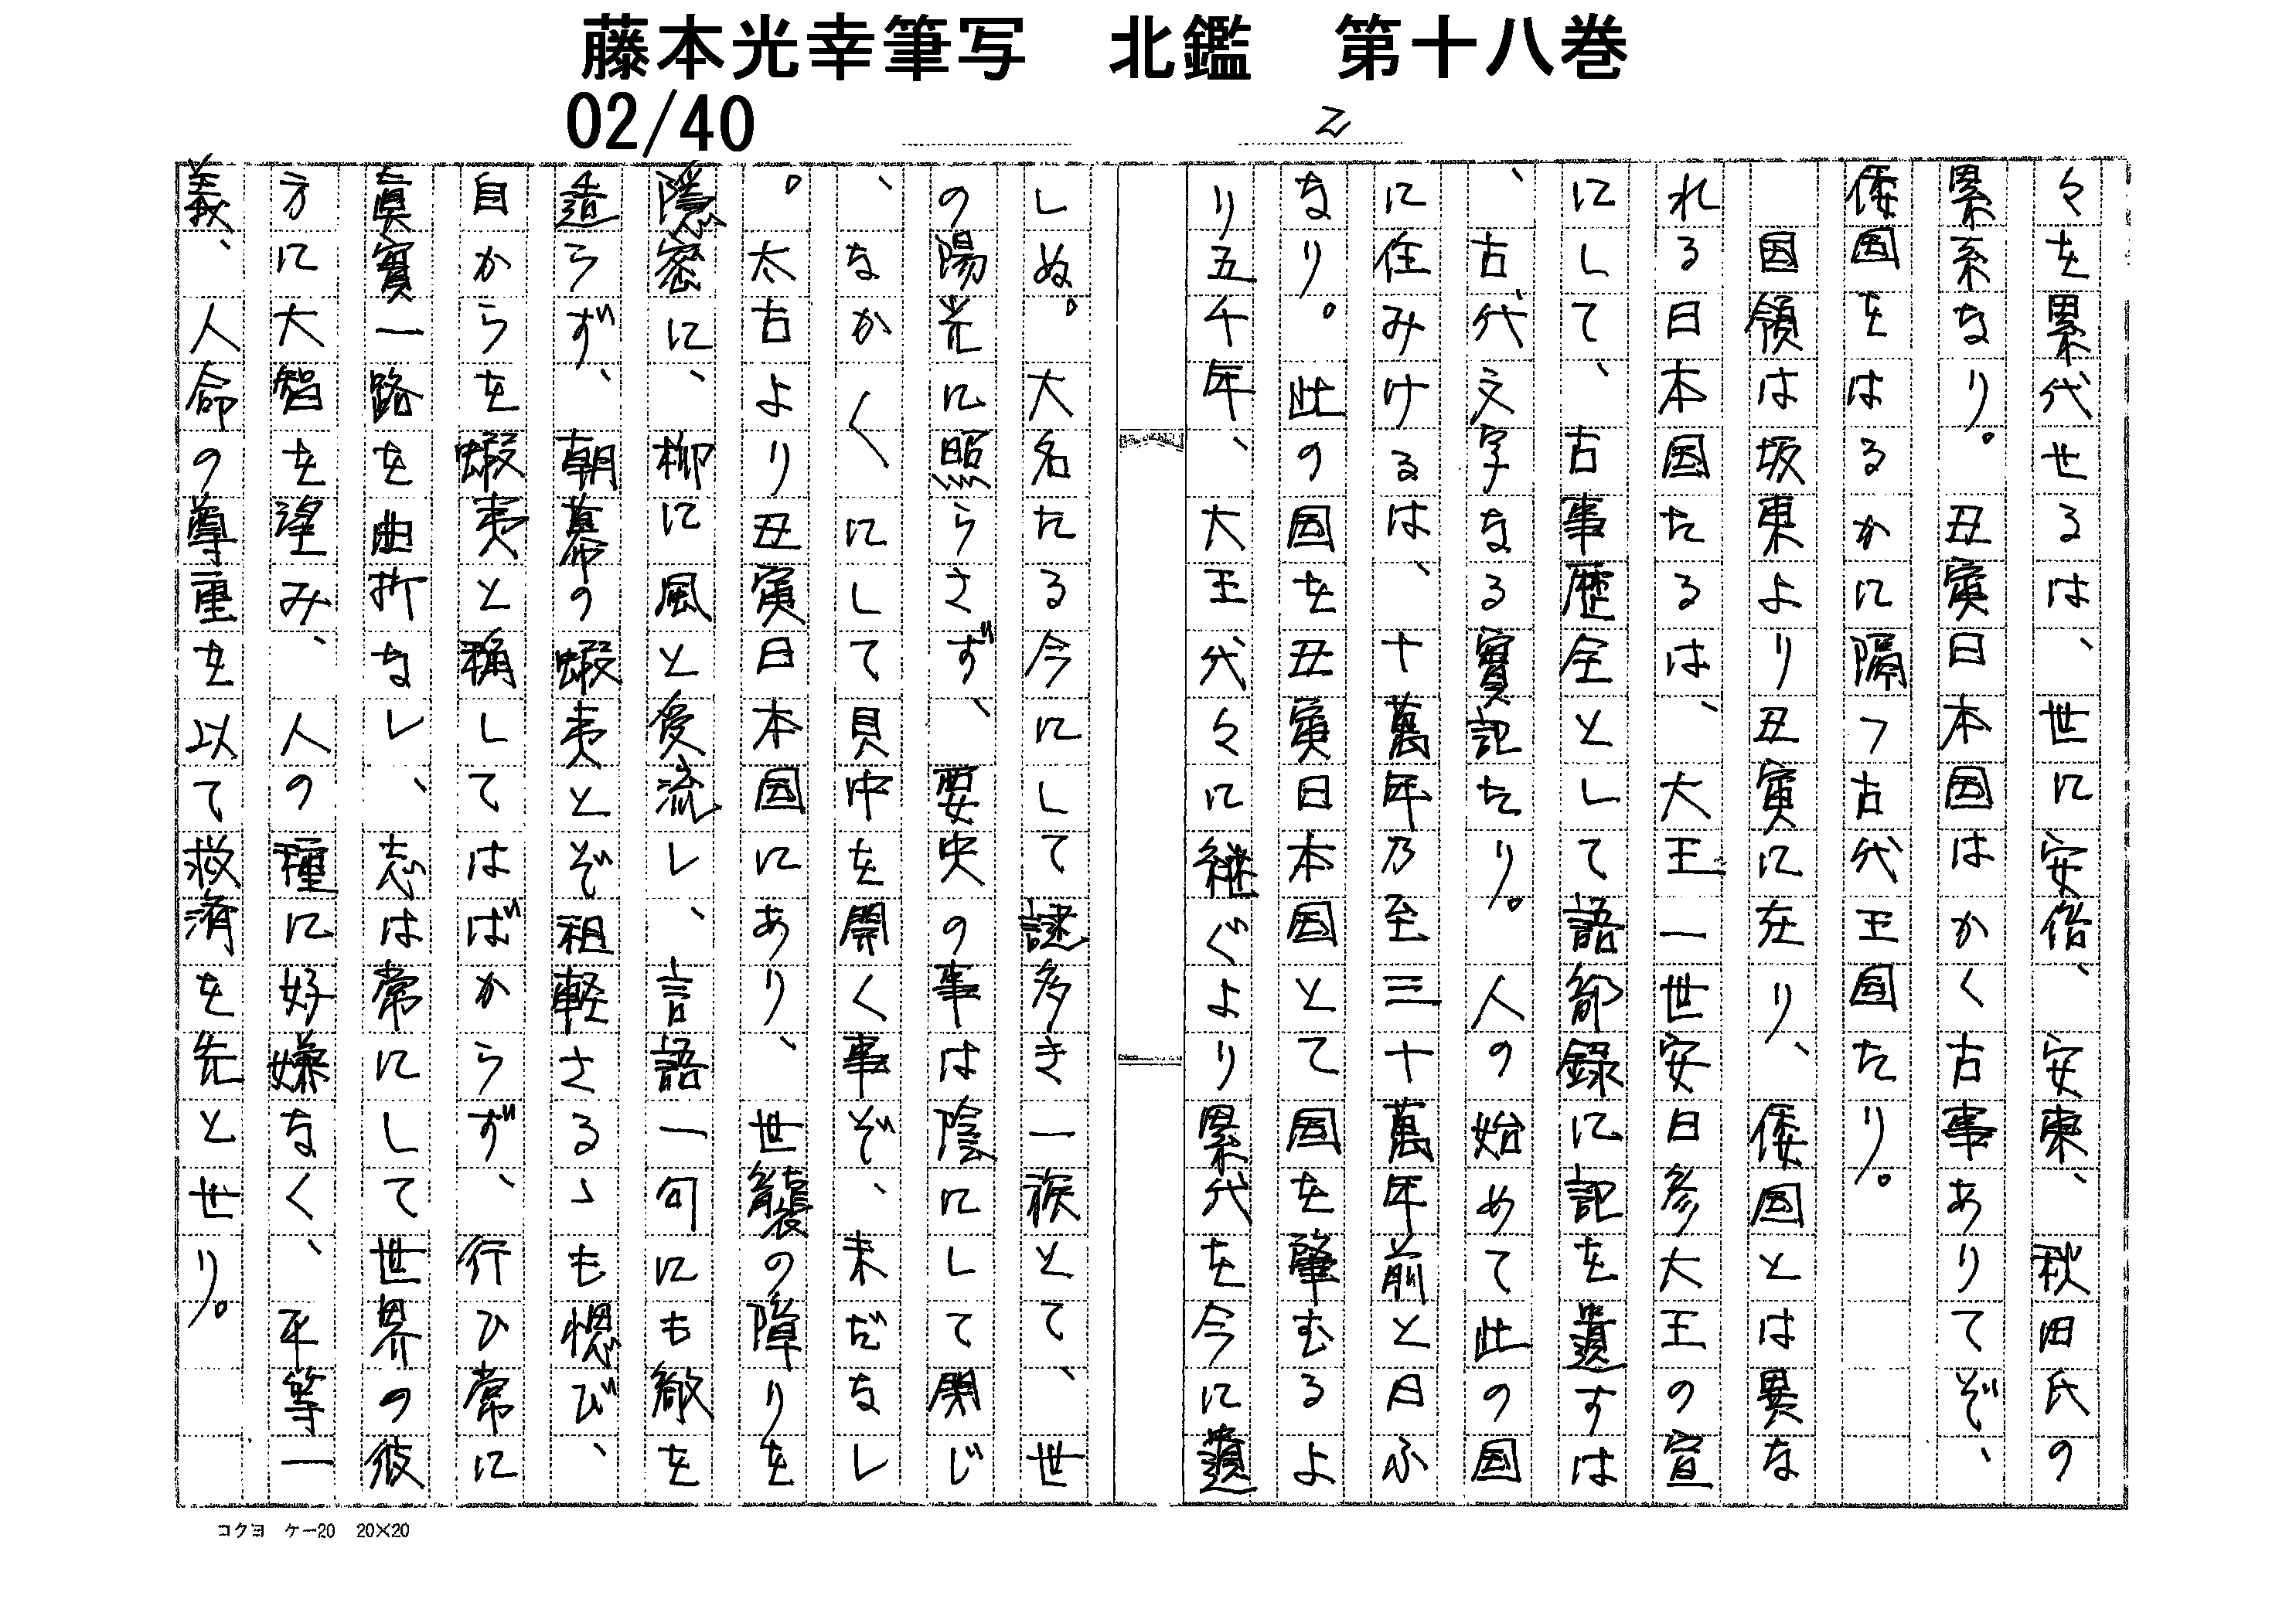 藤本光幸筆写　北鑑　第十八巻
02/40
2
々を累代世るは、世に安倍、安東、秋田氏の
累系なり。丑寅日本国はかく古事ありてぞ、
倭国をはるかに隔つ古代王国たり。
　国領は坂東より丑寅に在り、倭国とは異な
れる日本国たるは、大王一世安日彦大王の宣
にして、古事歴全として語部録に記を遺すは
、古代文字なる實記たり。人の始めて此の国
に住みけるは、十萬年乃至三十萬年前と曰ふ
なり。此の国を丑寅日本国とて国を肇むるよ
り五千年、大王代々に継ぐより累代を今に遺
しぬ。大名たる今にして謎多き一族とて、世
の陽光に照らさず、要史の事は陰にして閉じ
、なかくにして貝中を開く事ぞ、未だなし
。太古より丑寅日本国にあり、世襲の障りを
隠密に、柳に風と受流し、言語一句にも敵を
造らず、朝幕の蝦夷とぞ祖軽さるゝも偲び、
自からを蝦夷と稱してはばからず、行ひ常に
眞實一路を曲折なし、志は常にして世界の彼
方に大智を望み、人の種に好嫌なく、平等一
義、人命の尊重を以て救済を先と世り。
コクヨ　ケー20　20×20